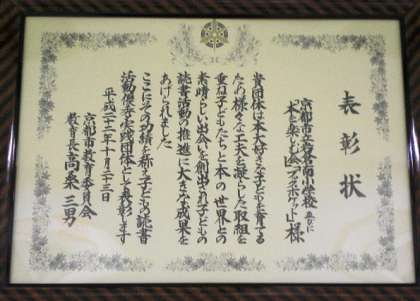 表彰状
京都市立若葉南小学校
「本を楽しむ会 ブックポケット」様
貴団体は本が好きな子どもを育てる
ため様々な工夫を凝らした取組を
重ね子どもたちと本の世界との
素晴らしい出会いを創出され子どもの
読書活動の推進に大きな成果を
あげられました
ここにその功績を称え子どもの読書
活動優秀実践団体として表彰します
平成二十二年十月二十三日
京都市教育委員会
教育長 高桑三男